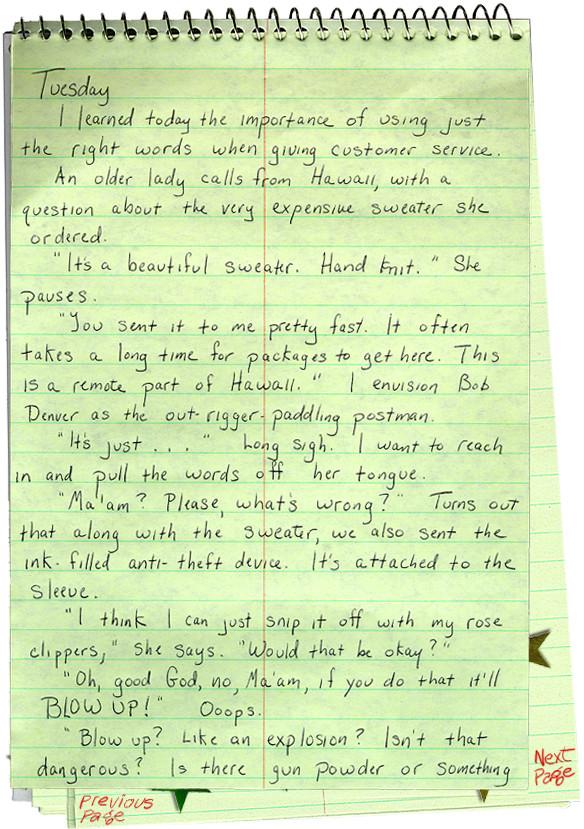 Tuesday
I learned today the importance of using just
the right words when giving customer service.
An older lady calls from Hawaii, with a
question about the very expensive sweater she
ordered.
"It's a beautiful sweater. Hand knit." She
pauses.
"You sent it to me pretty fast. It often
takes a long time for packages to get here. This
is a remote part of Hawaii." I envision Bob
Denver as the out-rigger-paddling postman.
"It's just . . . " Long sigh. I want to reach
in and pull the words off her tongue.
"Ma'am? Please, what's wrong?" Turns out
that along with the sweater, we also sent the
ink-filled anti-theft device. It's attached to the
sleeve.
"I think I can just snip it off with my rose
clippers," she says. "Would that be okay?"
"Oh, good God, no, Ma'am, if you do that it'll
BLOW UP!" Ooops.
"Blow up? Like an explosion? Isn't that
dangerous? Is there gun powder or something
Next
Page
Previous
Page